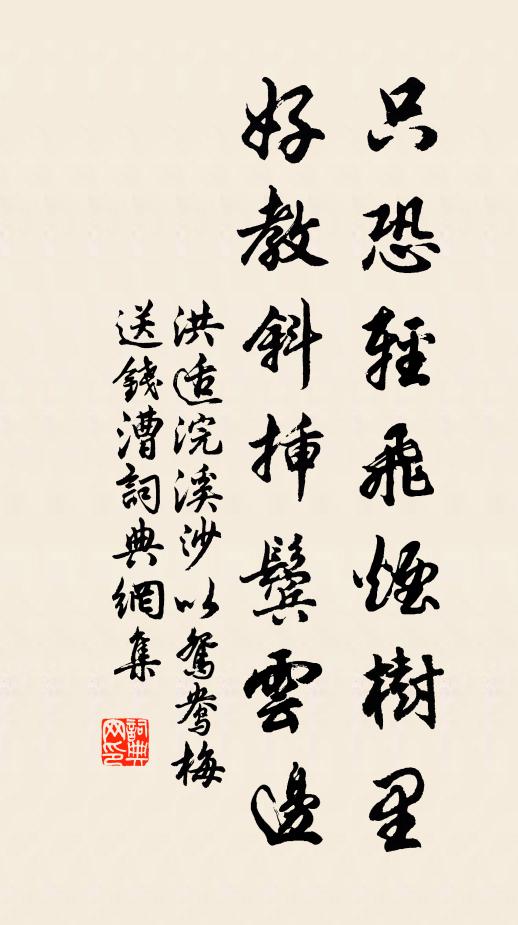 只恐輕飛煙樹里
好教斜插鬢雲邊
洪适浣溪沙以鴛鴦梅
送錢漕詞典網集
詞典網印